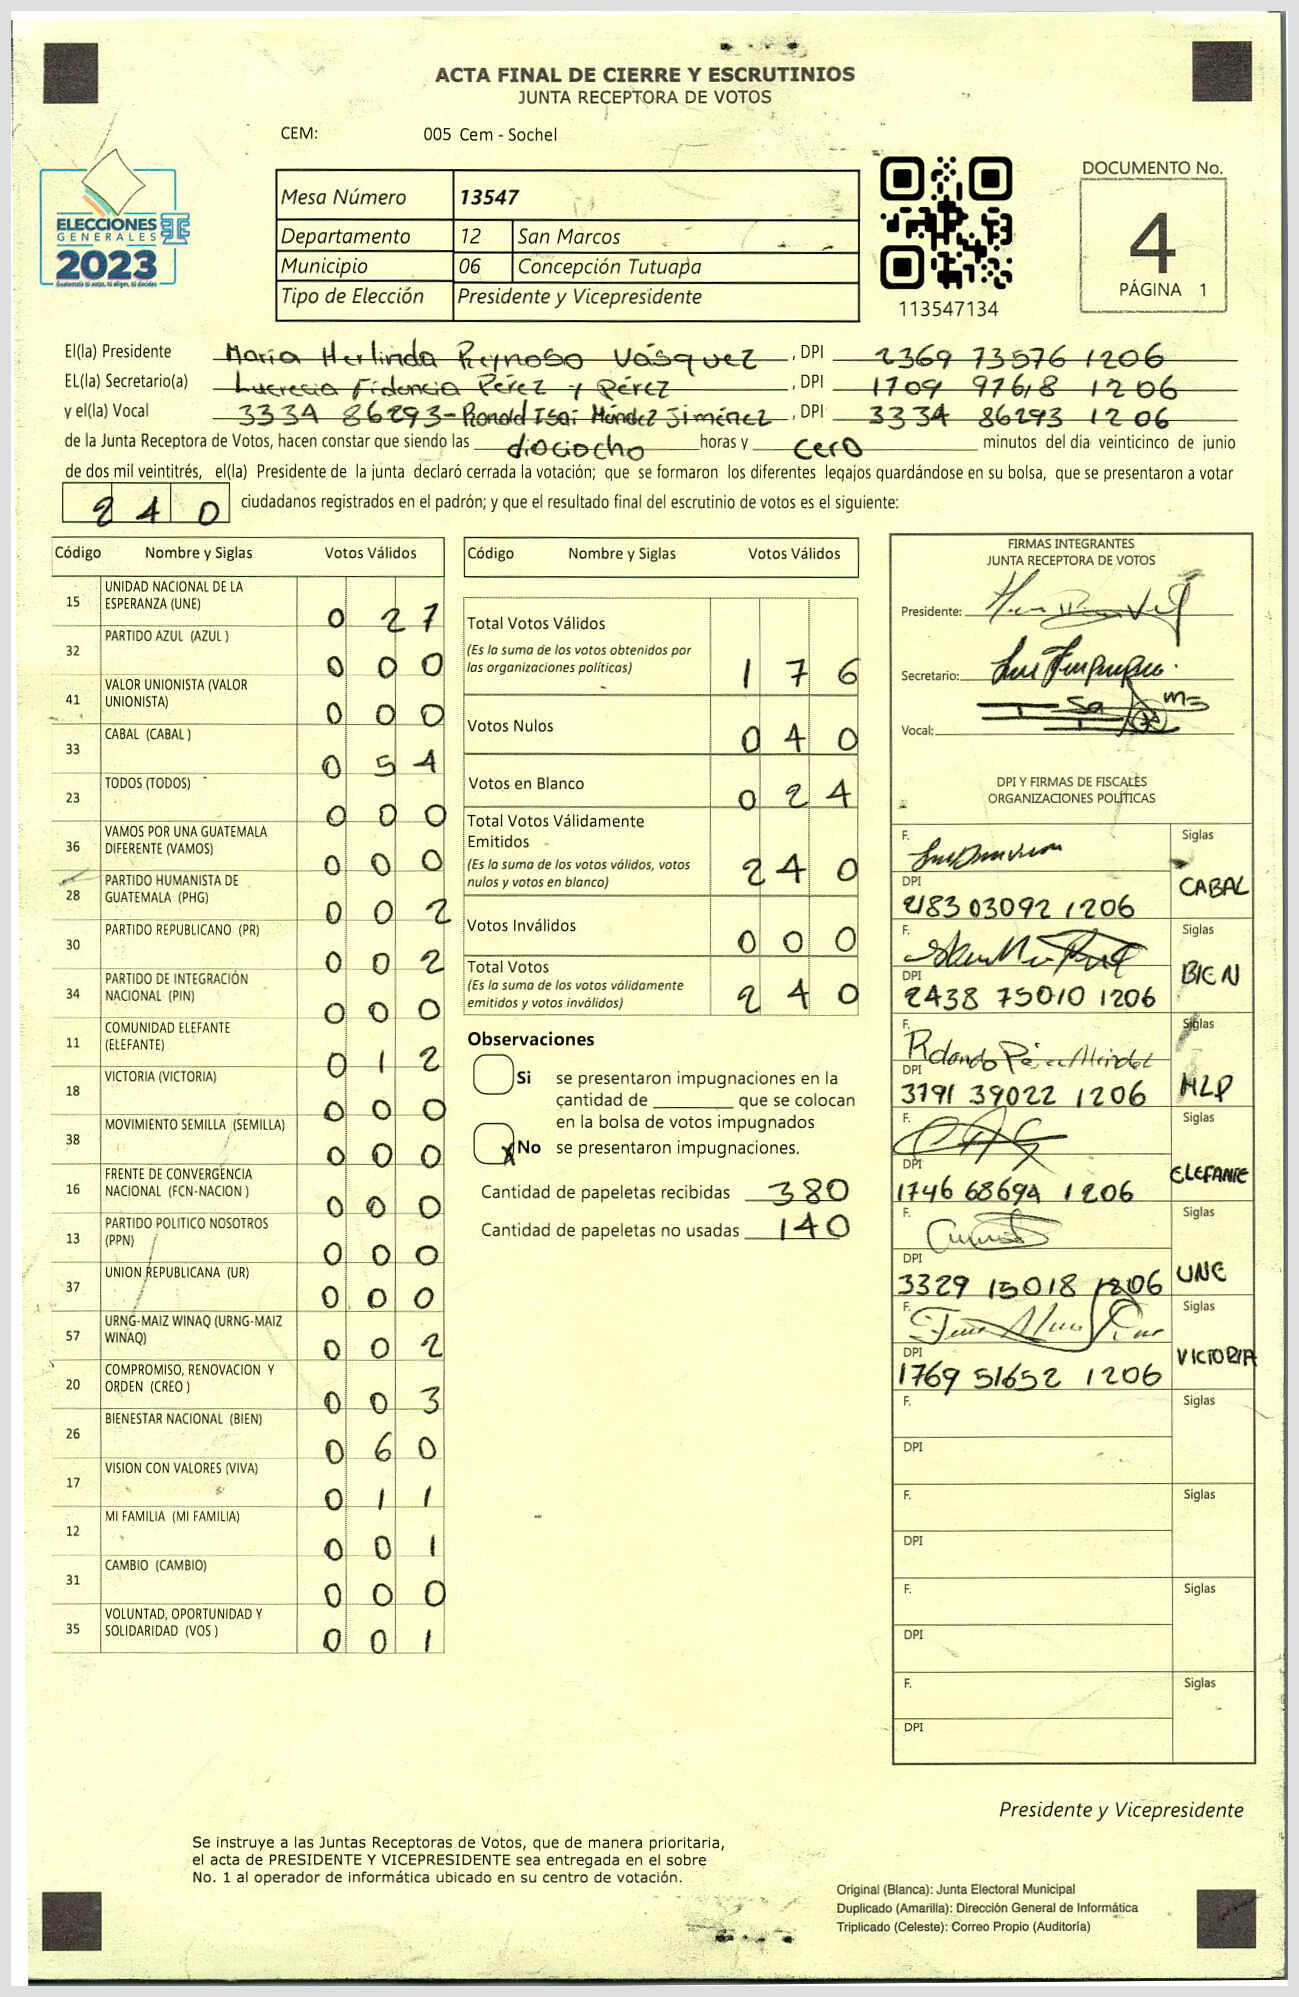 ACTA FINAL DE CIERRE Y ESCRUTINIOS
JUNTA RECEPTORA DE VOTOS
CEM: 005 Cem - Sochel
ELECCIONES
GENERALES
2023
Mesa Número 13547
Departamento 12 San Marcos
Municipio 06 Concepción Tutuapa
Tipo de Elección Presidente y Vicepresidente
113547134
DOCUMENTO No.
4
PÁGINA 1
El(la) Presidente María Herlinda Reynoso Vásquez , DPI 2369 73576 1206
EL(la) Secretario(a) Lucrecia Fidencia Pérez y Pérez , DPI 1709 97618 1206
y el(la) Vocal 3334 86293- Ronald Isaí Méndez Jiménez , DPI 3334 86293 1206
de la Junta Receptora de Votos, hacen constar que siendo las dieciocho horas y cero minutos del día veinticinco de junio
de dos mil veintitrés, el(la) Presidente de la junta declaró cerrada la votación; que se formaron los diferentes legajos quardándose en su bolsa, que se presentaron a votar
240 ciudadanos registrados en el padrón; y que el resultado final del escrutinio de votos es el siguiente:
Código Nombre y Siglas Votos Válidos
15 UNIDAD NACIONAL DE LA ESPERANZA (UNE) 0 27
32 PARTIDO AZUL (AZUL ) 0 0 0
41 VALOR UNIONISTA (VALOR UNIONISTA) 0 0 0
33 CABAL (CABAL ) 0 5 4
23 TODOS (TODOS) 0 0 0
36 VAMOS POR UNA GUATEMALA DIFERENTE (VAMOS) 0 0 0
28 PARTIDO HUMANISTA DE GUATEMALA (PHG) 0 0 2
30 PARTIDO REPUBLICANO (PR) 0 0 2
34 PARTIDO DE INTEGRACIÓN NACIONAL (PIN) 0 0 0
11 COMUNIDAD ELEFANTE (ELEFANTE) 0 1 2
18 VICTORIA (VICTORIA) 0 0 0
38 MOVIMIENTO SEMILLA (SEMILLA) 0 0 0
16 FRENTE DE CONVERGENCIA NACIONAL (FCN-NACION ) 0 0 0
13 PARTIDO POLITICO NOSOTROS (PPN) 0 0 0
37 UNION REPUBLICANA (UR) 0 0 0
57 URNG-MAIZ WINAQ (URNG-MAIZ WINAQ) 0 0 2
20 COMPROMISO, RENOVACION Y ORDEN (CREO ) 0 0 3
26 BIENESTAR NACIONAL (BIEN) 0 6 0
17 VISION CON VALORES (VIVA) 0 1 1
12 MI FAMILIA (MI FAMILIA) 0 0 1
31 CAMBIO (CAMBIO) 0 0 0
35 VOLUNTAD, OPORTUNIDAD Y SOLIDARIDAD (VOS ) 0 0 1
Código Nombre y Siglas Votos Válidos
Total Votos Válidos 1 7 6
(Es la suma de los votos obtenidos por
las organizaciones políticas)
Votos Nulos 0 4 0
Votos en Blanco 0 2 4
Total Votos Válidamente
Emitidos 2 4 0
(Es la suma de los votos válidos, votos
nulos y votos en blanco)
Votos Inválidos 0 0 0
Total Votos 2 4 0
(Es la suma de los votos válidamente
emitidos y votos inválidos)
Observaciones
Si se presentaron impugnaciones en la
cantidad de ________ que se colocan
en la bolsa de votos impugnados
X No se presentaron impugnaciones.
Cantidad de papeletas recibidas 380
Cantidad de papeletas no usadas 140
FIRMAS INTEGRANTES
JUNTA RECEPTORA DE VOTOS
Presidente:
Secretario:
Vocal:
DPI Y FIRMAS DE FISCALES
ORGANIZACIONES POLÍTICAS
F. Siglas
CABAL
DPI
2183 03092 1206
F. Siglas
BIEN
DPI
2438 75010 1206
F. Rolando Siglas
MLP
DPI
3791 39022 1206
F. Siglas
ELEFANTE
DPI
1746 68694 1206
F. Siglas
UNE
DPI
3329 15018 1206
F. Siglas
VICTORIA
DPI
1769 51652 1206
F. Siglas
DPI
F. Siglas
DPI
F. Siglas
DPI
F. Siglas
DPI
Presidente y Vicepresidente
Se instruye a las Juntas Receptoras de Votos, que de manera prioritaria,
el acta de PRESIDENTE Y VICEPRESIDENTE sea entregada en el sobre
No. 1 al operador de informática ubicado en su centro de votación.
Original (Blanca): Junta Electoral Municipal
Duplicado (Amarilla): Dirección General de Informática
Triplicado (Celeste): Correo Propio (Auditoría)